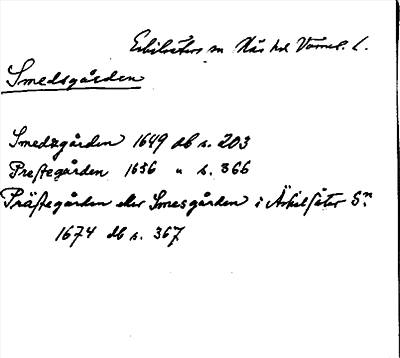 Eskilsäters sn Näs hd Värml. l.
Smedsgården
Smedzgården 1649 db s. 203
Prestegården 1656 " s. 366
Prästegården eller Smesgården i Äskilsäter Sn
1674 db s. 367